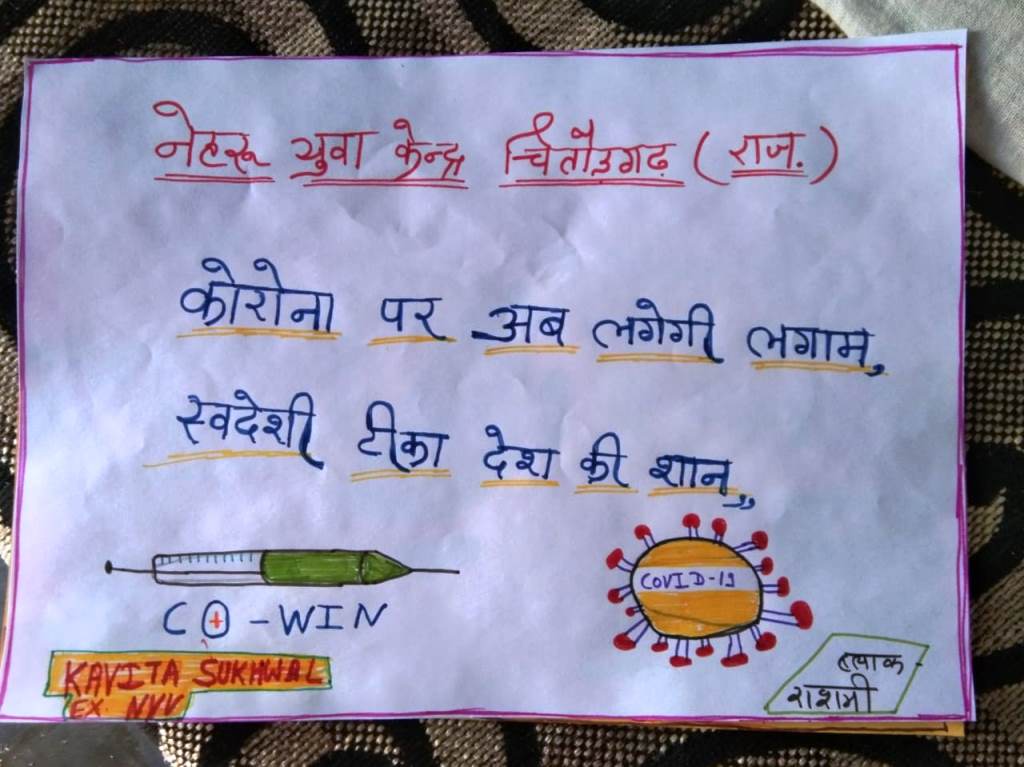 नेहरू युवा केन्द्र चित्तौड़गढ़ (राज.)
कोरोना पर अब लगेगी लगाम,
स्वदेशी टीका देश की शान,,
CO-WIN
COVID-19
KAVITA SUKHWAL
EX. NYV
ब्लाक-
राशमी